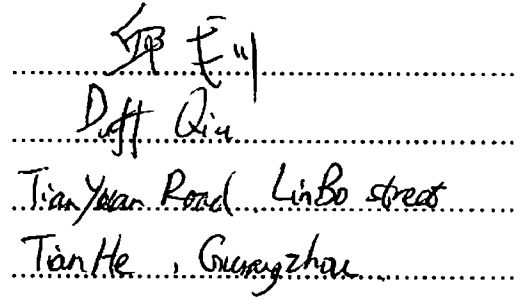 邱
Duff Qiu
TianYuan Road, LinBo street
TianHe, Guangzhou